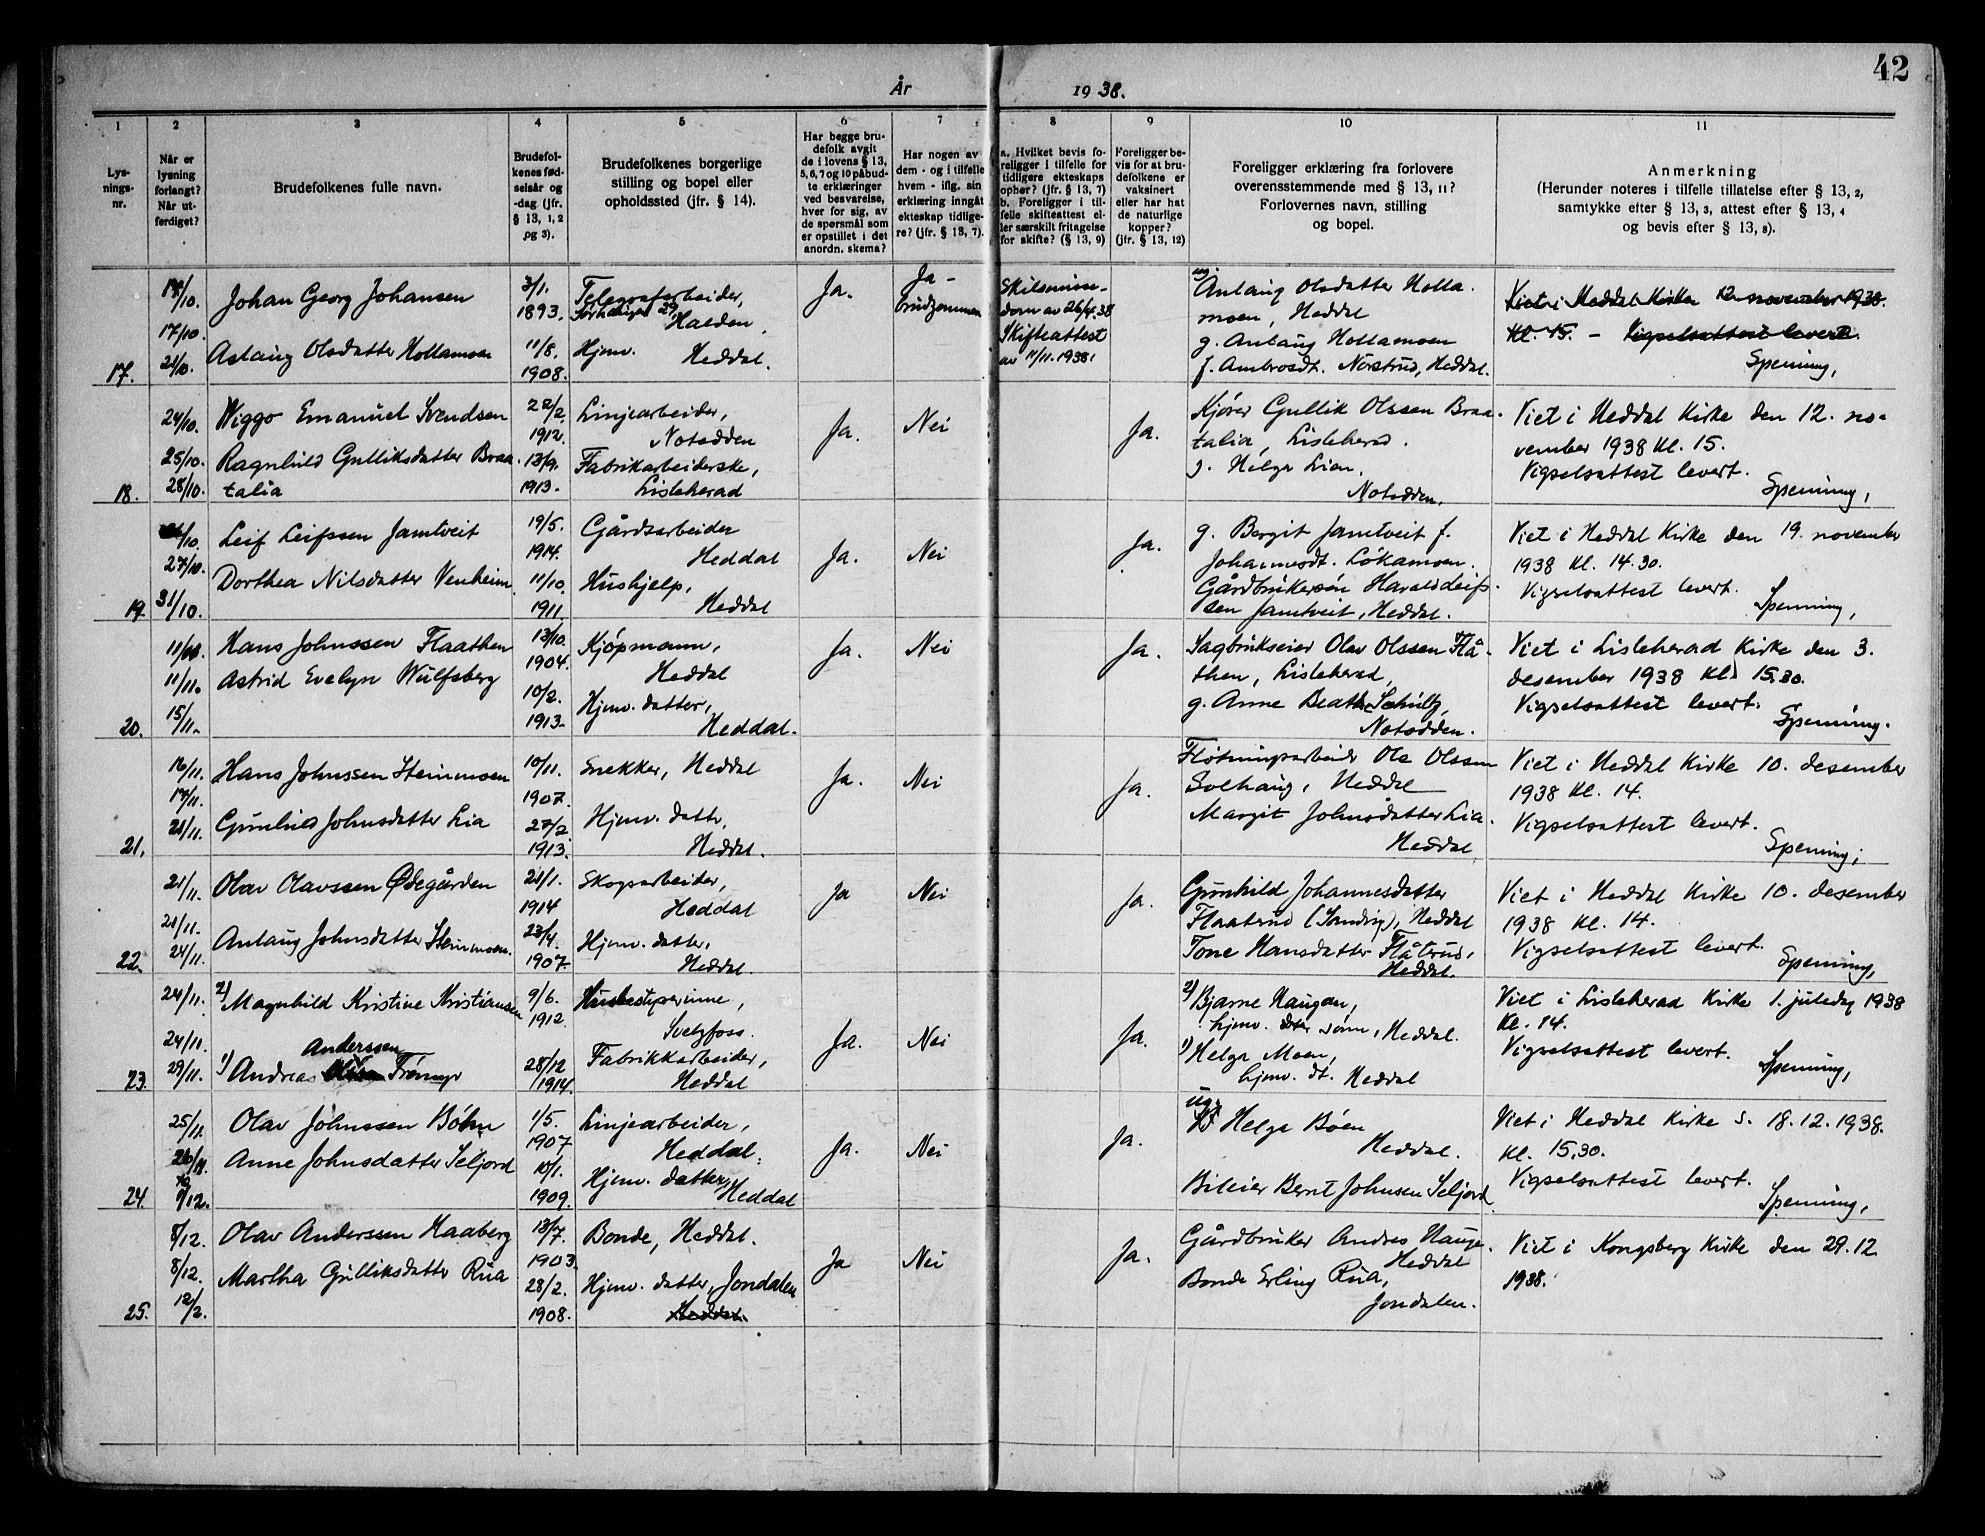 42
År 1938.
1 2 3 4 5 6 7 8 9 10 11
Lys-
nings-
nr.
Når er
lysning
forlangt?
Når ut-
ferdiget?
Brudefolkenes fulle navn.
Brudefol-
kenes fød-
selsår og
-dag (jfr.
§ 13, 1, 2
og 3).
Brudefolkenes borgerlige
stilling og bopel eller
opholdssted (jfr. § 14).
Har begge bru-
defolk avgit
de i lovens § 13,
5, 6, 7 og 10 påbud-
te erklæringer
ved besvarelse,
hver for sig, av
de spørsmål som
er opstillet i det
anordn. skema?
Har nogen av
dem - og i tilfelle
hvem - iflg. sin
erklæring inngått
ekteskap tidlige-
re? (jfr. § 13, 7).
a. Hvilket bevis fo-
religger i tilfelle for
tidligere ekteskaps
ophør? (jfr. § 13, 7)
b. Foreligger i til-
felle skifteattest el-
ler særskilt fritagelse
for skifte? (§ 13, 9)
Foreligger be-
vis for at bru-
defolkene er
vaksinert
eller har hat
de naturlige
kopper?
(jfr. § 13, 12)
Foreligger erklæring fra forlovere
overensstemmende med § 13, 11?
Forlovernes navn, stilling
og bopel.
Anmerkning
(Herunder noteres i tilfelle tillatelse efter § 13, 2,
samtykke efter § 13, 3, attest efter § 13, 4
og bevis efter § 13, 8).
17.
17/10.
17/10.
21/10.
Johan Georg Johansen
Aslaug Olsdatter Hollamoen
3/1.
1893.
11/8.
1908.
Telegrafarbeider,
Halden,
Hjmv. Heddal.
Ja.
Ja -
brudgommen
Skilsmisse-
dom av 26/4.38
Skifteattest
av 11/11.1938.
ug. Anlaug Olsdatter Holla-
moen, Heddal
g. Anlaug Hollamoen
f. Ambrosdt. Norstrud, Heddal.
Viet i Heddal Kirke 12 november 1938.
Kl. 15. - Vigselsattest levert.
Spenning,
18.
24/10.
25/10.
28/10.
Wiggo Emanuel Svendsen
Ragnhild Gulliksdatter Braa-
talia
22/2.
1912.
13/9.
1913.
Linjearbeider,
Notodden
Fabrikarbeiderske,
Lisleherad
Ja.
Nei
Ja.
Kjører Gullik Olssen Braa-
talia, Lisleherad.
g. Helga Lien,
Notodden.
Viet i Heddal Kirke den 12. no-
vember 1938 kl. 15.
Vigselsattest levert.
Spenning,
19.
27/10.
31/10.
Leif Leifssen Jamtveit
Dorthea Nilsdatter Venheim
19/5.
1914.
11/10.
1911.
Gårdsarbeider
Heddal
Hushjelp,
Heddal
Ja.
Nei
Ja.
g. Bergit Jamtveit f.
Johannesdt. Løkamoen.
Gårdbrukersøn Harald Leifs-
sen Jamtveit, Heddal.
Viet i Heddal Kirke den 19. november
1938 kl. 14.30.
Vigselsattest levert.
Spenning,
20.
11/11.
15/11.
Hans Johnssen Flaathen
Astrid Evelyn Wulfsberg
13/10.
1904.
10/2.
1913.
Kjøpmann,
Heddal
Hjmv. datter,
Heddal.
Ja.
Nei
Ja.
Sagbrukseier Olav Olssen Flå-
then, Lisleherad,
g. Anne Beathe Schultz,
Notodden.
Viet i Lisleherad Kirke den 3.
desember 1938 kl. 15,30.
Vigselsattest levert.
Spenning.
21.
16/11.
17/11.
21/11.
Hans Johnssen Steinmoen
Gunhild Johnsdatter Lia
10/11.
1907.
27/2.
1913.
Snekker, Heddal
Hjmv. dattr,
Heddal.
Ja.
Nei
Ja.
Fløtningsarbeider Ole Olssen
Solhaug, Heddal
Margit Johnsdatter Lia.
Heddal
Viet i Heddal Kirke 10. desember
1938 kl. 14.
Vigselsattest levert.
Spenning,
22.
21/11.
21/11.
24/11.
Olav Olavssen Ødegården
Anlaug Johnsdatter Steinmoen.
21/1.
1914
23/4.
1907.
Skogsarbeider,
Heddal
Hjmv. datter,
Heddal.
Ja
Nei
Ja.
Gunhild Johannesdatter
Flaatrud (Sandvig), Heddal
Tone Hansdatter Flåtrud,
Heddal.
Viet i Heddal Kirke 10. desember
1938 kl. 14.
Vigselsattest levert.
Spenning,
23.
24/11.
24/11.
29/11.
2) Magnhild Kristine Kristiansen
Anderssen
1) Andreas
9/6.
1912.
28/12
1914.
Husbestyrerinne,
Svelgfoss.
Fabrikkarbeider,
Heddal
Ja.
Nei
Ja.
2) Bjarne Haugan,
hjmv. sønn, Heddal.
1) Helga Moen,
hjmv. dt. Heddal
Viet i Lisleherad Kirke 1. juledag 1938
kl. 14.
Vigselsattest levert.
Spenning,
24.
25/11.
26/11.
9/12.
Olav Johnssen Bøhn
Anne Johnsdatter Seljord
1/5.
1907
10/1.
1909.
Linjearbeider,
Heddal.
Hjmv. datter,
Heddal
Ja.
Nei
Ja.
ug.
Helga Bøen
Heddal.
Bileier Bernt Johnsen Seljord
Viet i Heddal Kirke d. 18.12.1938.
kl. 15,30.
Vigselsattest levert.
Spenning,
25.
8/12.
8/12.
12/2.
Olav Anderssen Haaberg
Martha Gulliksdatter Rua
13/7.
1903.
28/2.
1908.
Bonde, Heddal.
Hjmv. datter, Jondalen
Heddal.
Ja
Nei
Ja.
Gårdbruker Andres Hauge.
Heddal
Bonde Erling Rua,
Jondalen.
Viet i Kongsberg Kirke den 29.12
1938.